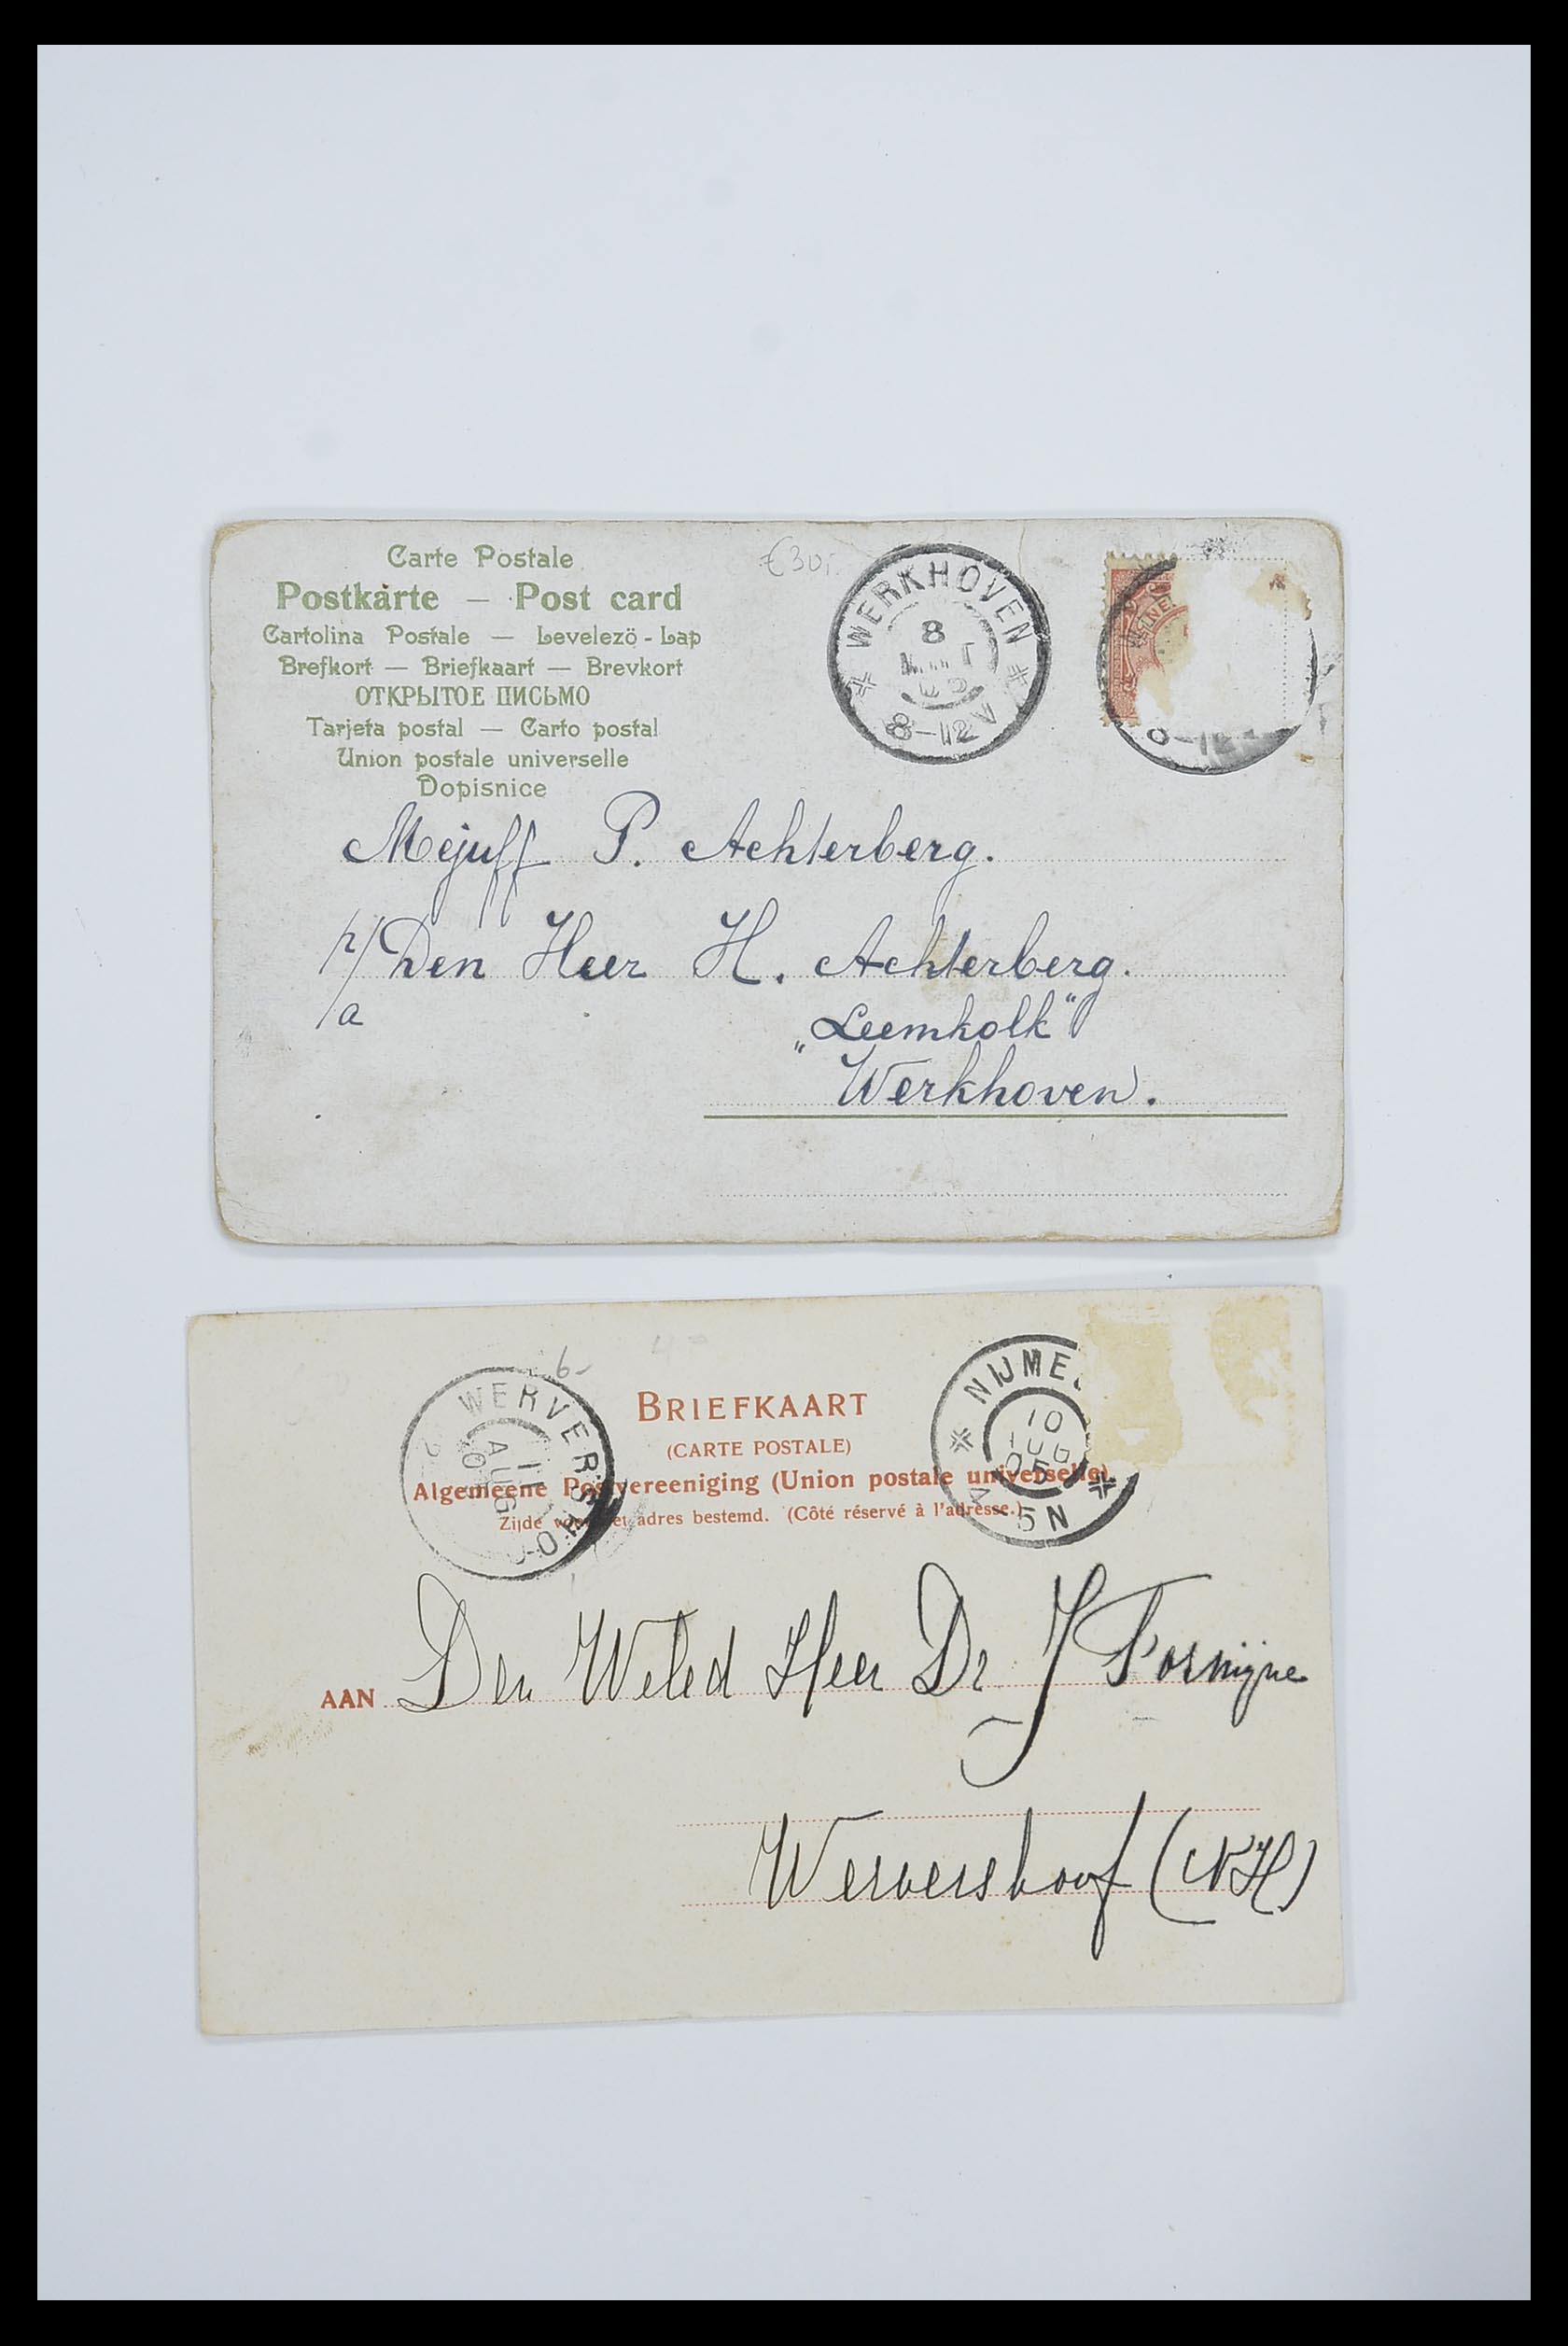 Carte Postale
Postkarte — Post card
Cartolina Postale — Levelezö-Lap
Brefkort — Briefkaart — Brevkort
ОТКРЫТОЕ ПИСЬМО
Tarjeta postal — Carto postal
Union postale universelle
Dopisnice
€30,-
WERKHOVEN
8
8-12V
Mejuff P. Achterberg.
p/a Den Heer H. Achterberg.
„Leemkolk"
Werkhoven.
6-
WERVERSH
11
AUG
BRIEFKAART
(CARTE POSTALE)
Algemeene Postvereeniging (Union postale universelle).
Zijde voor het adres bestemd. (Côté réservé à l'adresse.)
NIJME
10
AUG
05
4-5N
AAN Den Weled Heer Dr J
Wervershoof (NH)